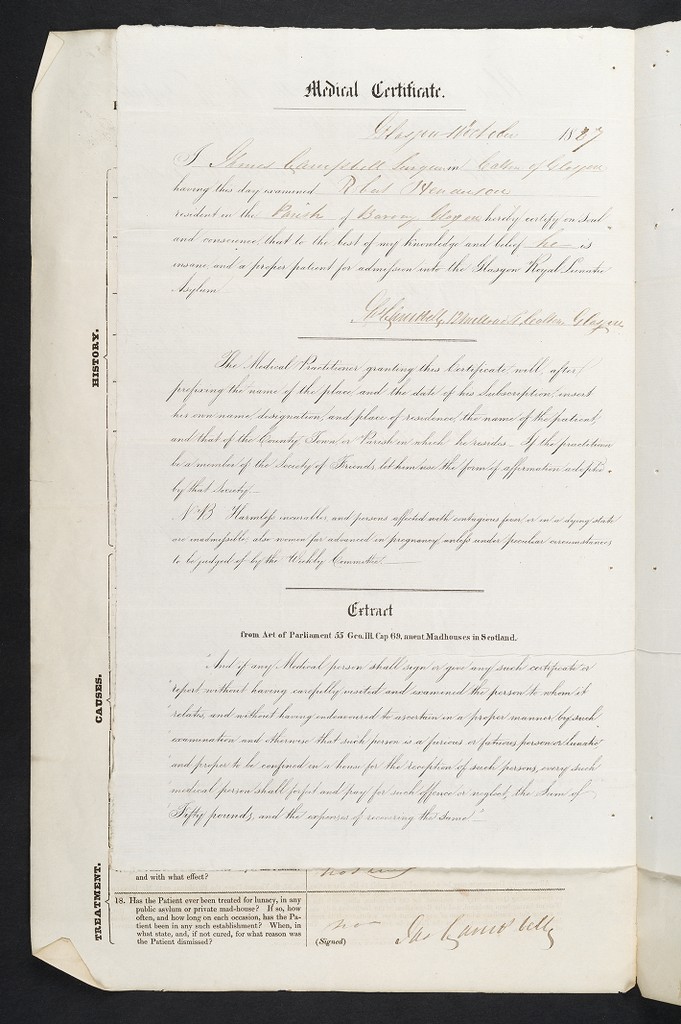 Medical Certificate.
Glasgow October 1837
I James Campbell Surgeon in Calton of Glasgow
having this day examined Robert Henderson
resident in the Parish of Barony Glasgow hereby certify on soul
and conscience, that to the best of my knowledge and belief he is
insane, and a proper patient for admission into the Glasgow Royal Lunatic
Asylum
Js Campbell, Calton Glasgow
The Medical Practitioner granting this Certificate, will, after
prefixing the name of the place, and the date of his Subscription, insert
his own name, designation, and place of residence, the name of the patient,
and that of the County Town or Parish in which he resides. If the practitioner
be a member of the Society of Friends, let him use the form of affirmation adopted
by that Society.
N.B. Harmless incurables, and persons affected with contagious fever or in a dying state
are inadmissible; also women far advanced in pregnancy unless under peculiar circumstances
to be judged of by the Weekly Committee.
Extract
from Act of Parliament 55 Geo. III. Cap 69, anent Madhouses in Scotland.
"And if any Medical person shall sign or give any such certificate or
"report without having carefully visited and examined the person to whom it
"relates, and without having endeavoured to ascertain in a proper manner by such
"examination and otherwise that such person is a furious or fatuous person or lunatic
"and proper to be confined in a house for the reception of such persons, every such
"medical person shall forfeit and pay for such offence or neglect, the Sum of
"Fifty pounds, and the expenses of recovering the same"
HISTORY.
CAUSES.
TREATMENT.
and with what effect?
18. Has the Patient ever been treated for lunacy, in any
public asylum or private mad-house? If so, how
often, and how long on each occasion, has the Pa-
tient been in any such establishment? When, in
what state, and, if not cured, for what reason was
the Patient dismissed?
no
(Signed) Jas Campbell